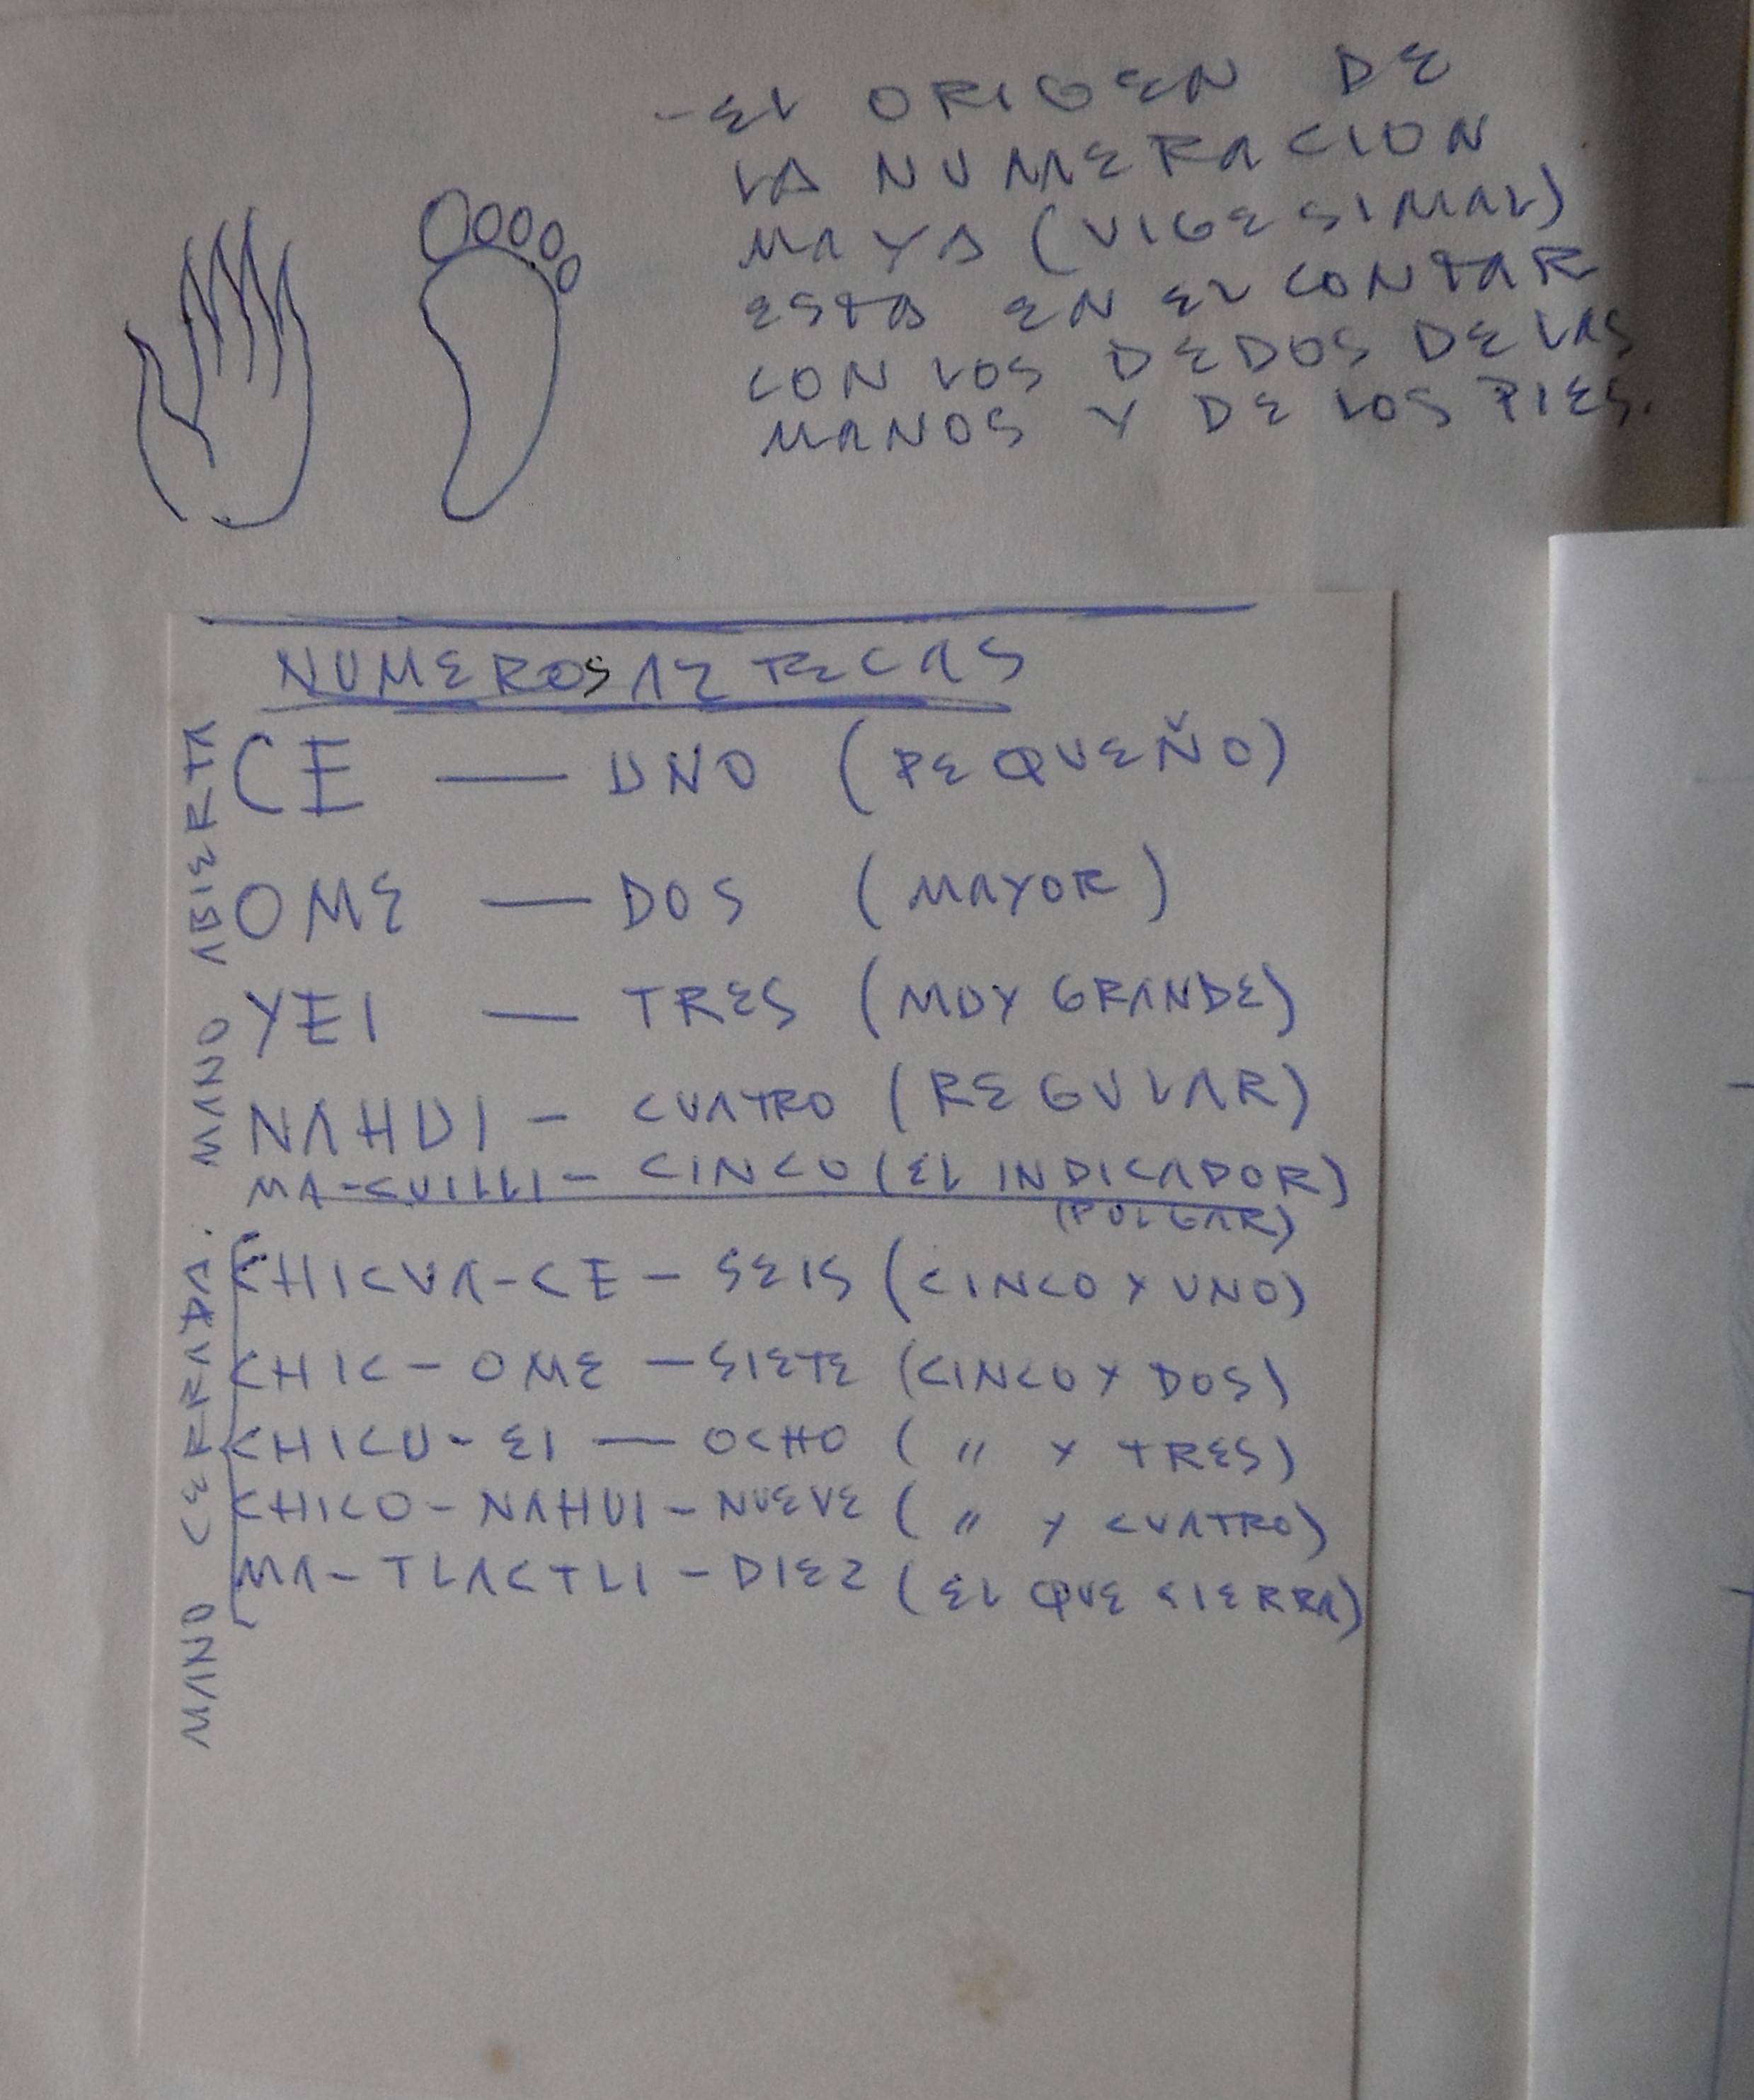 - EL ORIGEN DE
LA NUMERACION
MAYA (VIGESIMAL)
ESTA EN EL CONTAR
CON LOS DEDOS DE LAS
MANOS Y DE LOS PIES.
NUMEROS AZTECAS
CE — UNO (PEQUEÑO)
OME — DOS (MAYOR)
YEI — TRES (MUY GRANDE)
NAHUI - CUATRO (REGULAR)
MA-CUILLI - CINCO (EL INDICADOR)
(PULGAR)
CHICUA-CE - SEIS (CINCO Y UNO)
CHIC-OME - SIETE (CINCO Y DOS)
CHICU-EI — OCHO ( " Y TRES)
CHICO-NAHUI - NUEVE ( " Y CUATRO)
MA-TLACTLI - DIEZ (EL QUE SIERRA)
MANO ABIERTA
MANO CERRADA.